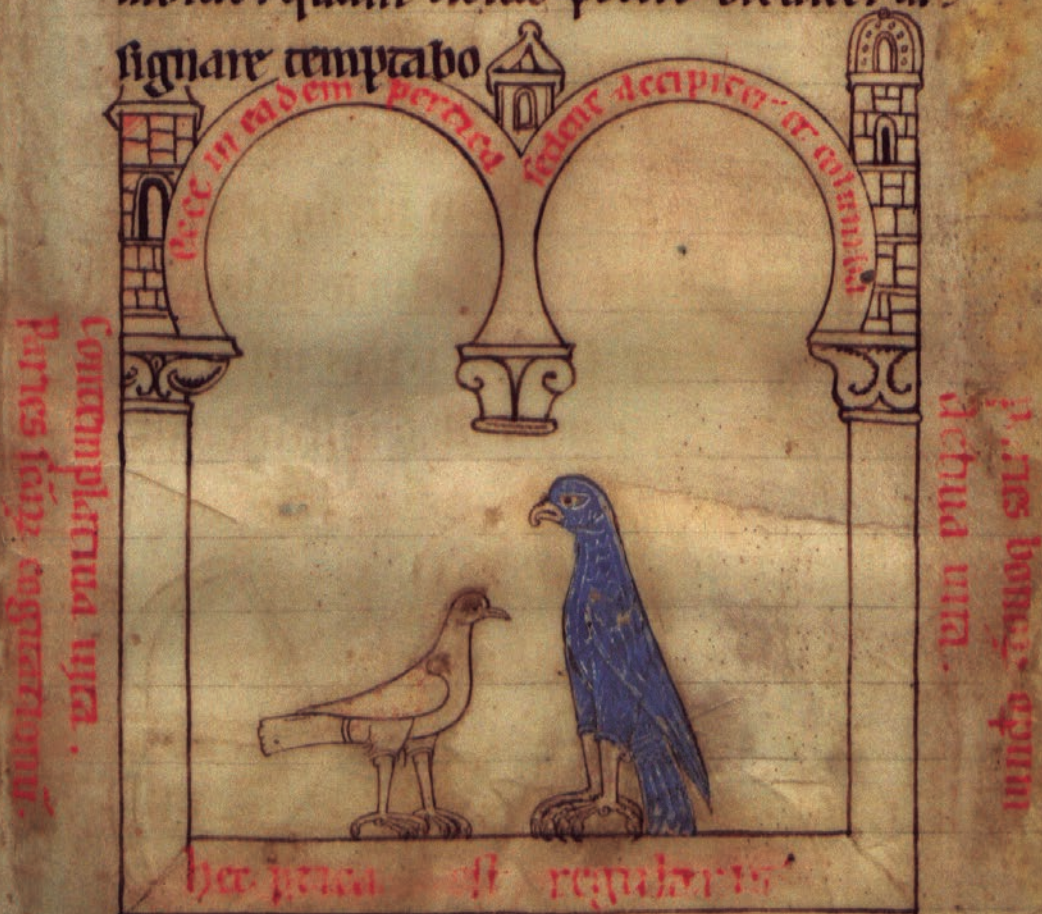 signare temptabo
Ecce in eadem pertica sedent accipiter et columba
Contemplatiua uita .
Paries cogitationū
actiua uita .
bonoꝝ opum
hec ptica est regularis